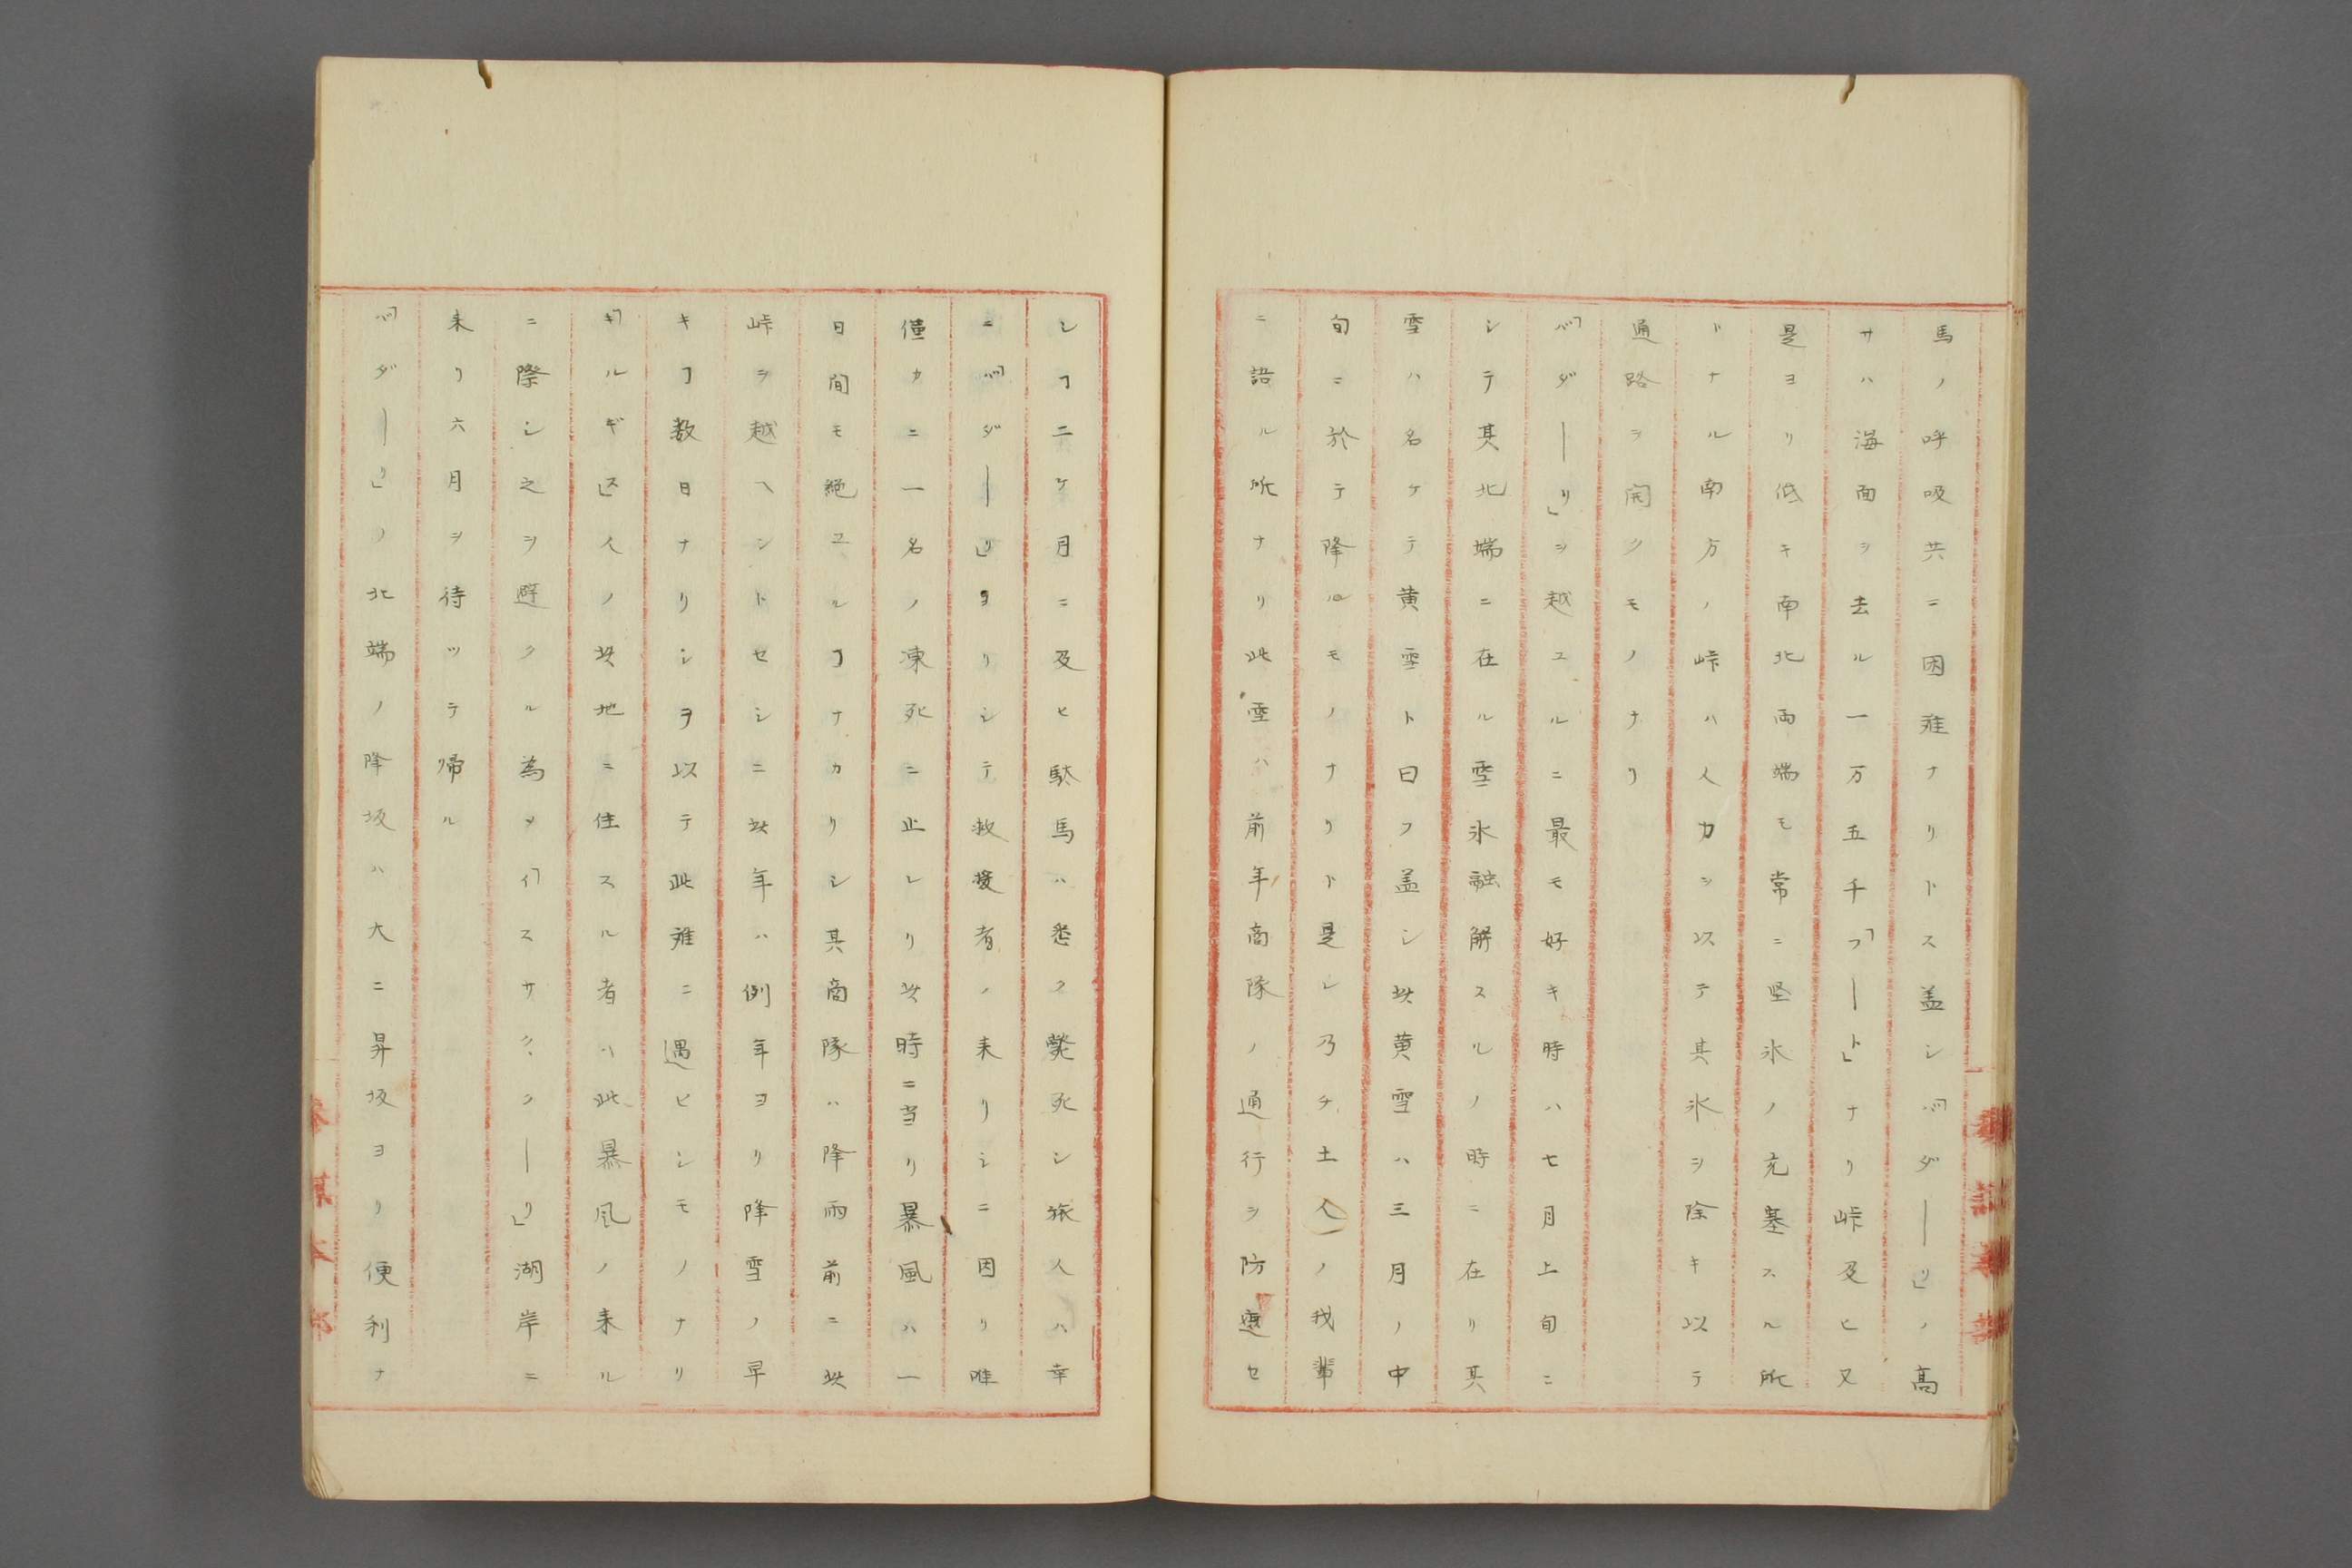 馬ノ呼吸共ニ困難ナリトス盖シ「バダーリ」ノ高
サハ海面ヲ去ル一万五千「フート」ナリ峠及ヒ又
是ヨリ低キ南北両端モ常ニ堅氷ノ充塞スル所
トナル南方ノ峠ハ人力ヲ以テ其氷ヲ除キ以テ
通路ヲ開クモノナリ
「バダーリ」ヲ越ユルニ最モ好キ時ハ七月上旬ニ
シテ其北端ニ在ル雪氷融解スルノ時ニ在リ其
雪ハ名ケテ黄雪ト曰フ盖シ此黄雪ハ三月ノ中
旬ニ於テ降ルモノナリト是レ乃チ土人ノ我輩
ニ語ル所ナリ此雪ハ前年商隊ノ通行ヲ防遮セ
シヿ二ケ月ニ及ヒ駄馬ハ悉ク斃死シ旅人ハ幸
ニ「バダーリ」ヨリシテ救援者ノ来リシニ因リ唯
僅カニ一名ノ凍死ニ止レリ此時ニ当リ暴風ハ一
日間モ絶ユルヿナカリシ其商隊ハ降雨前ニ此
峠ヲ越ヘントセシニ此年ハ例年ヨリ降雪ノ早
キヿ数日ナリシヲ以テ此難ニ遇ヒシモノナリ
「キルギス」人ノ此地ニ住スル者ハ此暴風ノ来ル
ニ際シ之ヲ避クル為メ「イスサクークーリ」湖岸ニ
来リ六月ヲ待ツテ帰ル
「バダーリ」ノ北端ノ降坂ハ大ニ昇坂ヨリ便利ナ